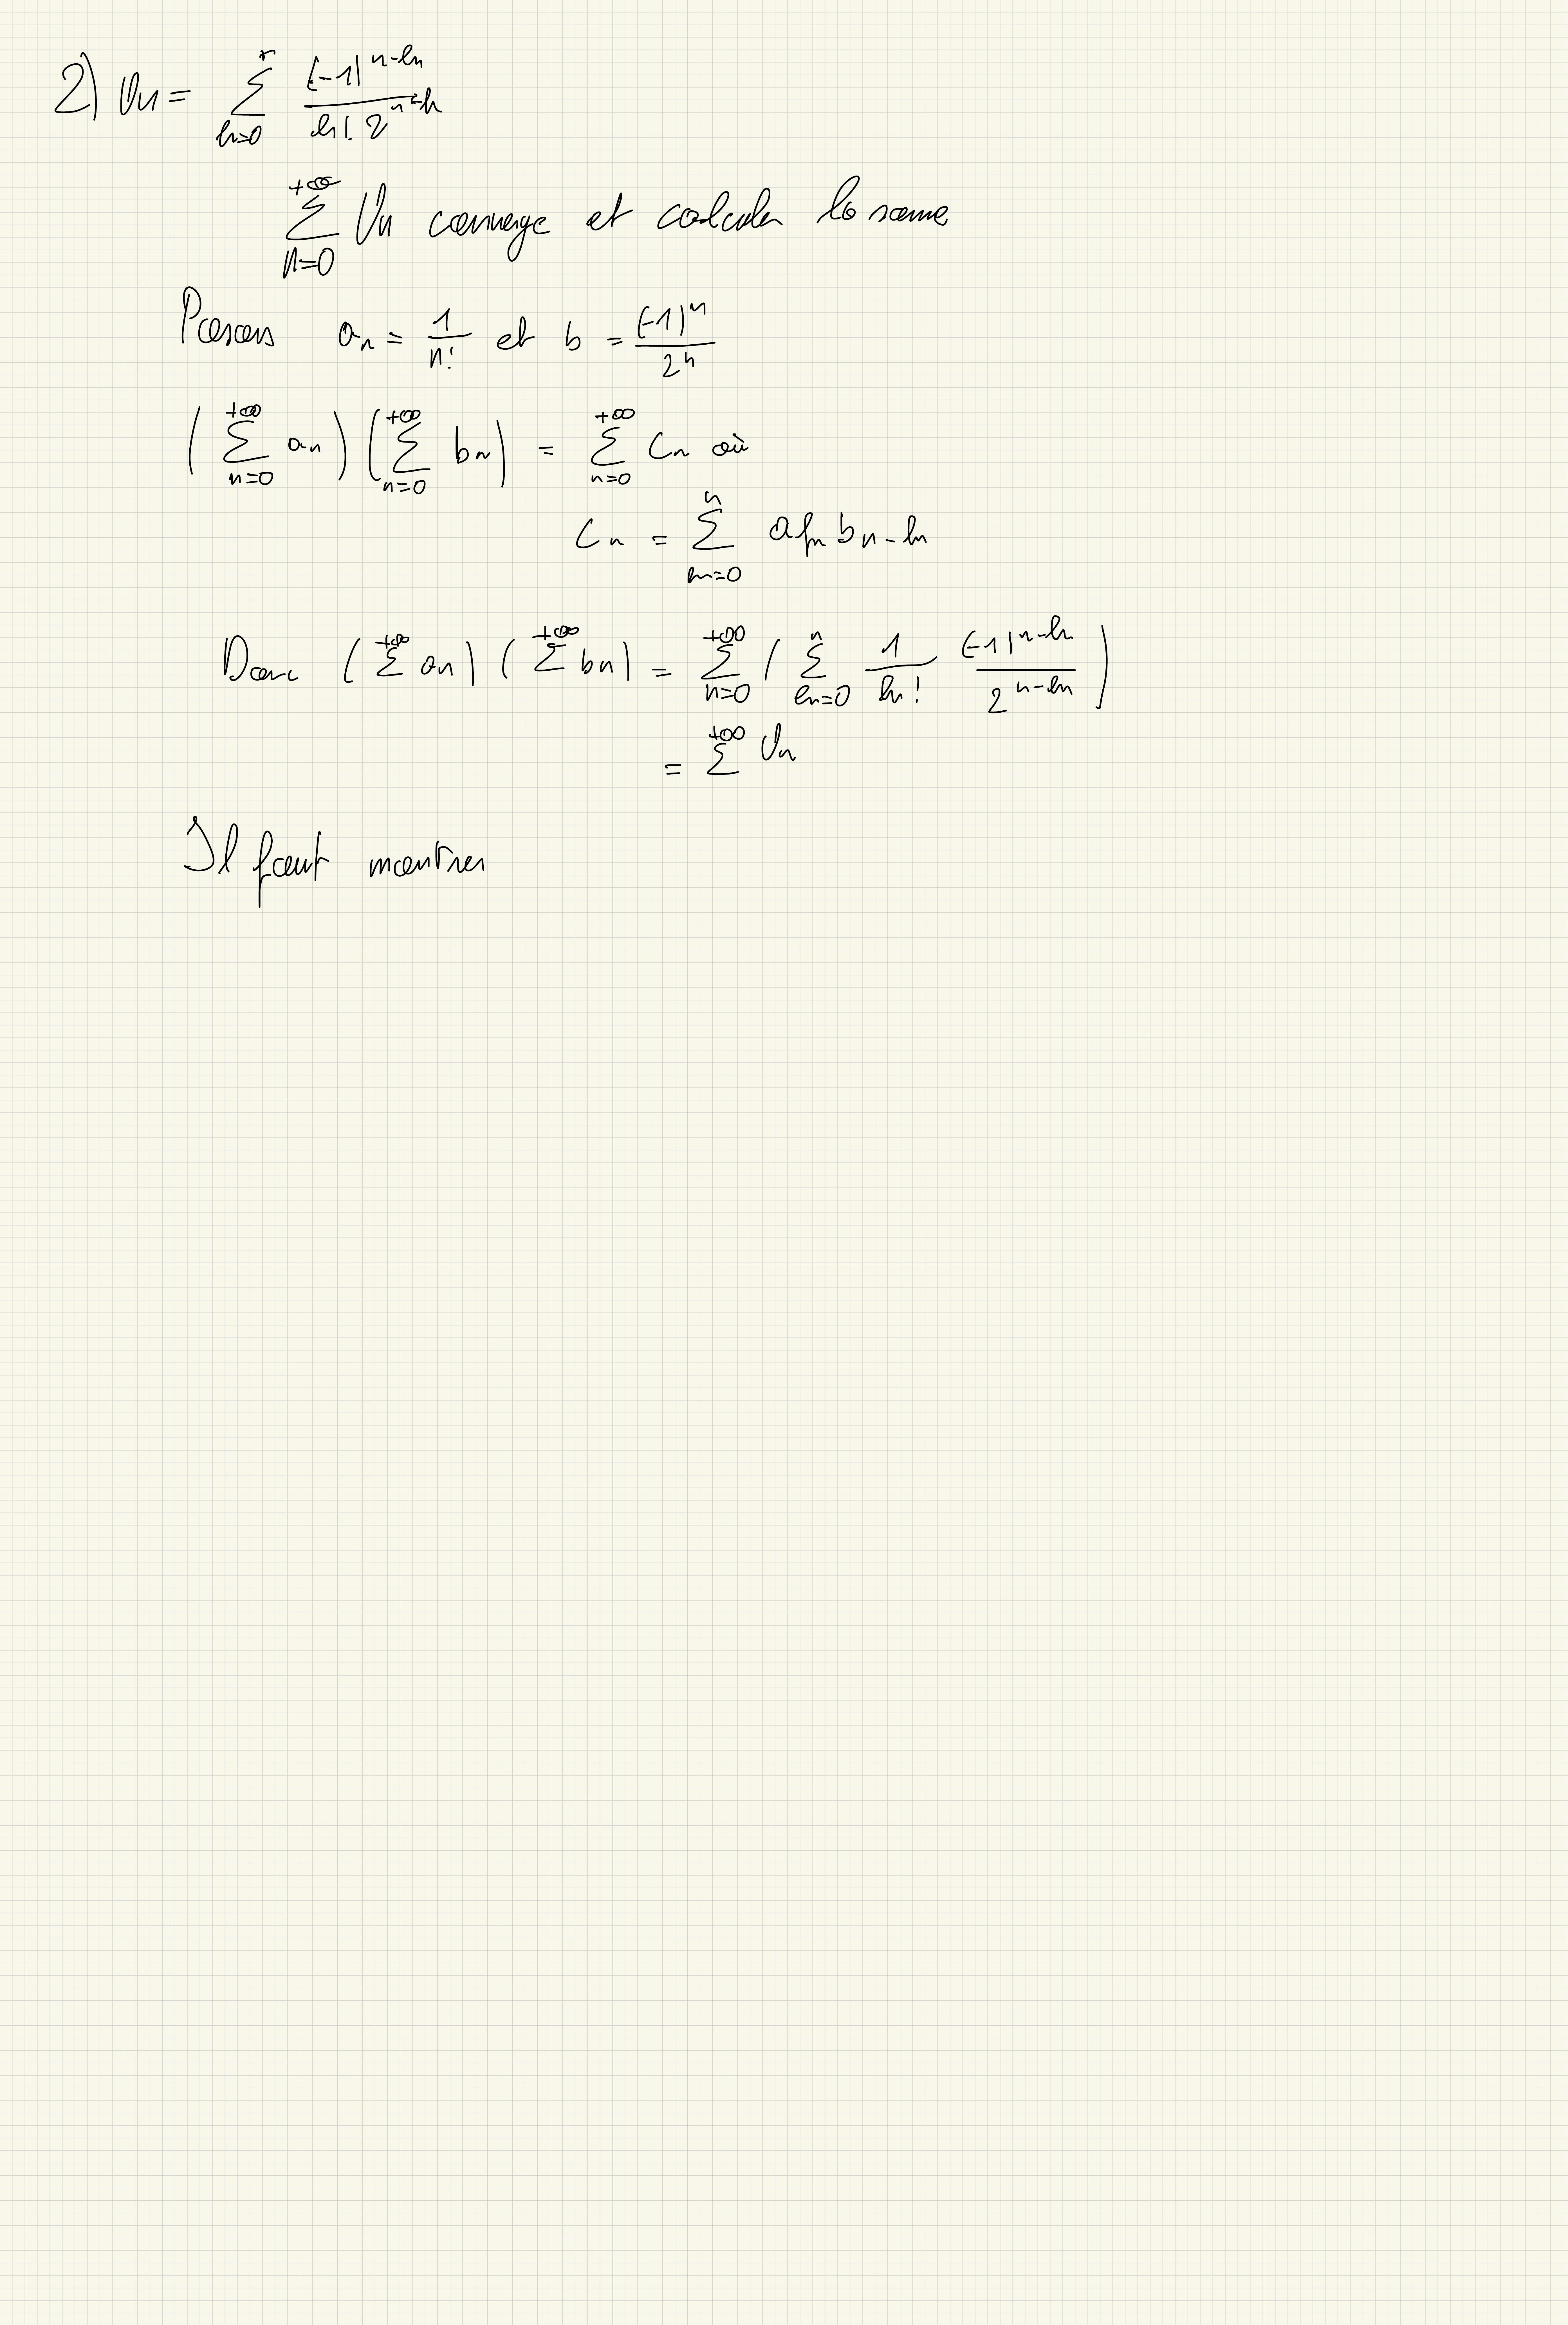 2) Un = Σ_{k=0}^{n} (-1)^{n-k} / (k! 2^{n-k})
Σ_{n=0}^{+∞} Un converge et calculer la somme
Posons a_n = 1/n! et b = (-1)^n / 2^n
(Σ_{n=0}^{+∞} a_n) (Σ_{n=0}^{+∞} b_n) = Σ_{n=0}^{+∞} C_n où
C_n = Σ_{k=0}^{n} a_k b_{n-k}
Donc (Σ^{+∞} a_n) (Σ^{+∞} b_n) = Σ_{n=0}^{+∞} (Σ_{k=0}^{n} 1/k! (-1)^{n-k} / 2^{n-k})
= Σ^{+∞} Un
Il faut montrer